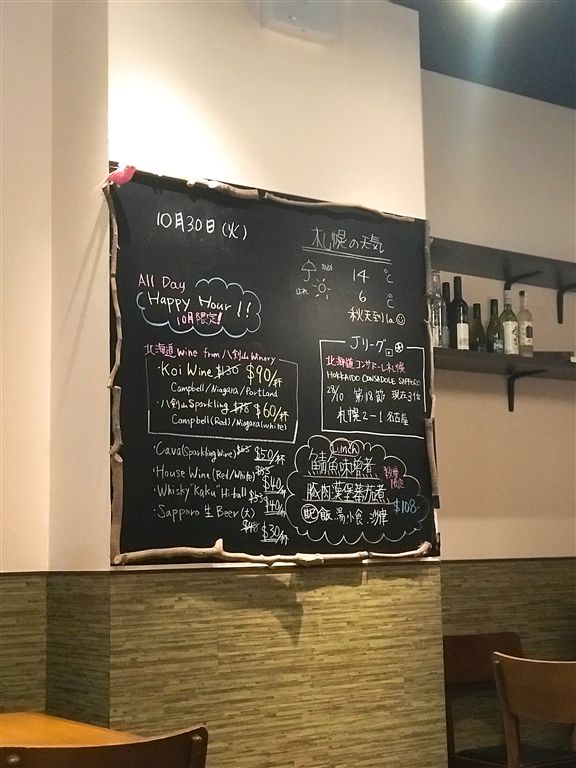 10月30日(火)
札幌の天気
14 ℃
はれ
6 ℃
秋天到la
All Day
Happy Hour!!
10月限定!
Jリーグ
北海道コンサドーレ札幌
HOKKAIDO CONSADOLE SAPPORO
28/10 第18節 現在3位
札幌2-1名古屋
北海道 wine from 八剣山 Winery
・Koi Wine $130 $90/杯
Campbell/Niagara/Portland
・八剣山Sparkling $78 $60/杯
Campbell(Red)/Niagara(white)
・Cava(Sparkling Wine) $65 $50/杯
・House Wine (Red/White) $55 $40/杯
・Whisky "Kaku" Hi-ball $53 $40/杯
・Sapporo 生Beer(大) $48 $30/杯
Lunch
鯖魚味噌煮
豚肉漢堡蕃茄煮
数量限定
$108-
配 飯.湯.小食.沙律